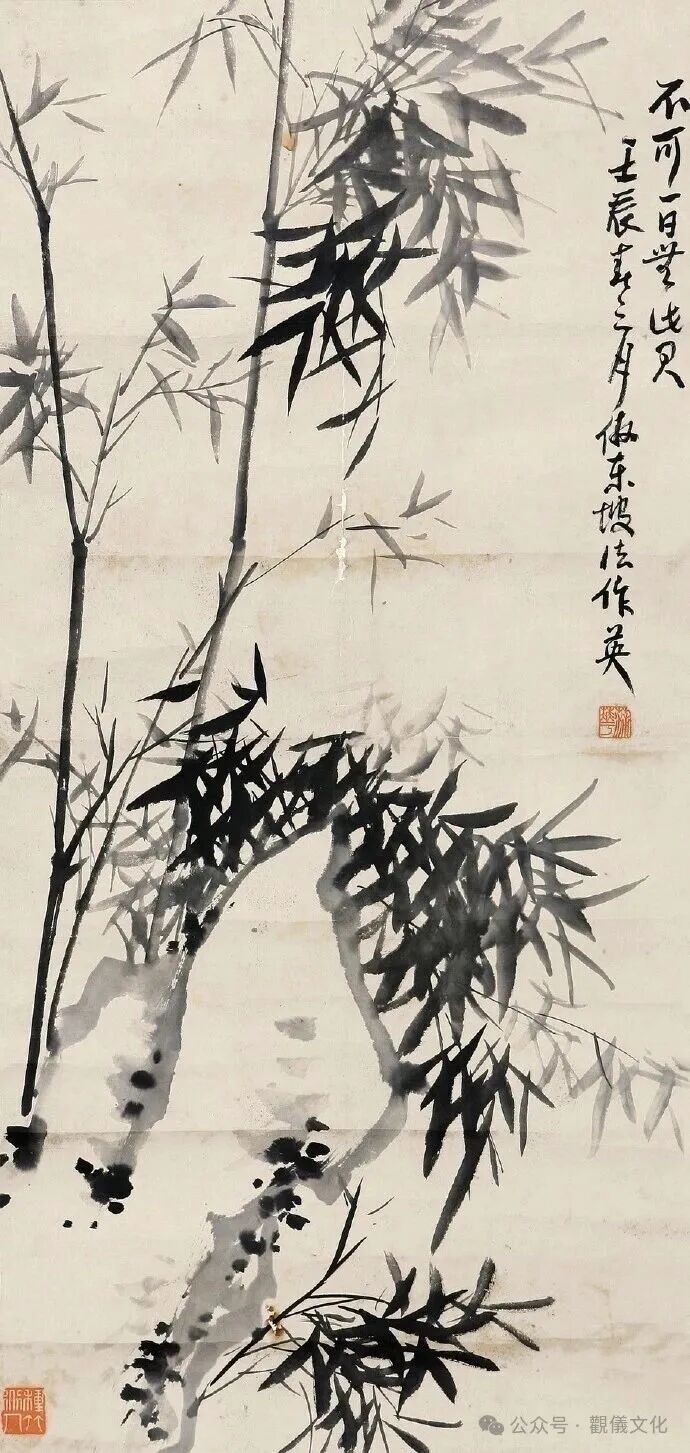 不可一日無此君
壬辰春三月倣东坡法作英
蒲華
公众号·觀儀文化